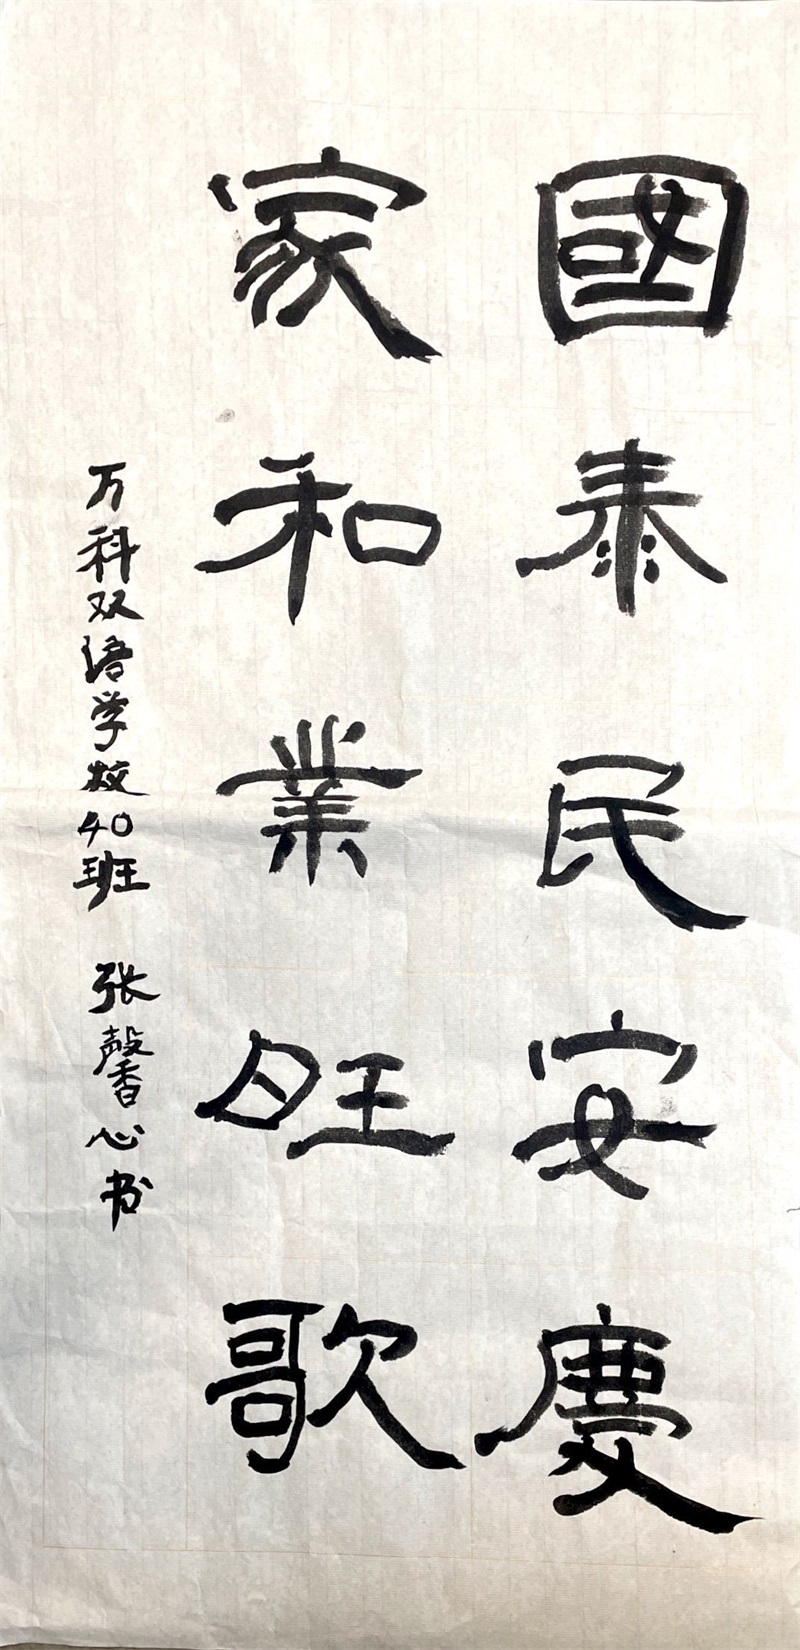 國泰民安慶
家和業旺歌
万科双语学校40班 张馨心书